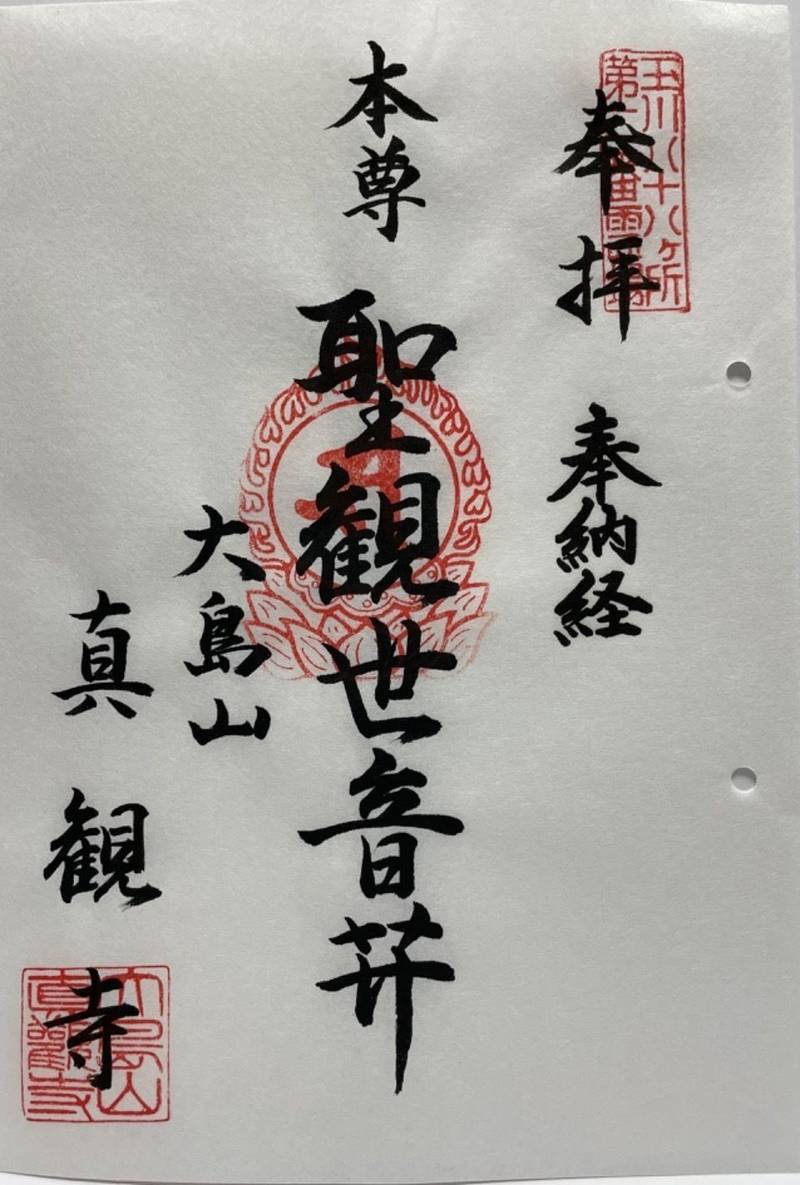 玉川八十八ヶ所
奉拝
奉納経
本尊
聖観世音菩
大島山
真観寺
大島山
真観寺